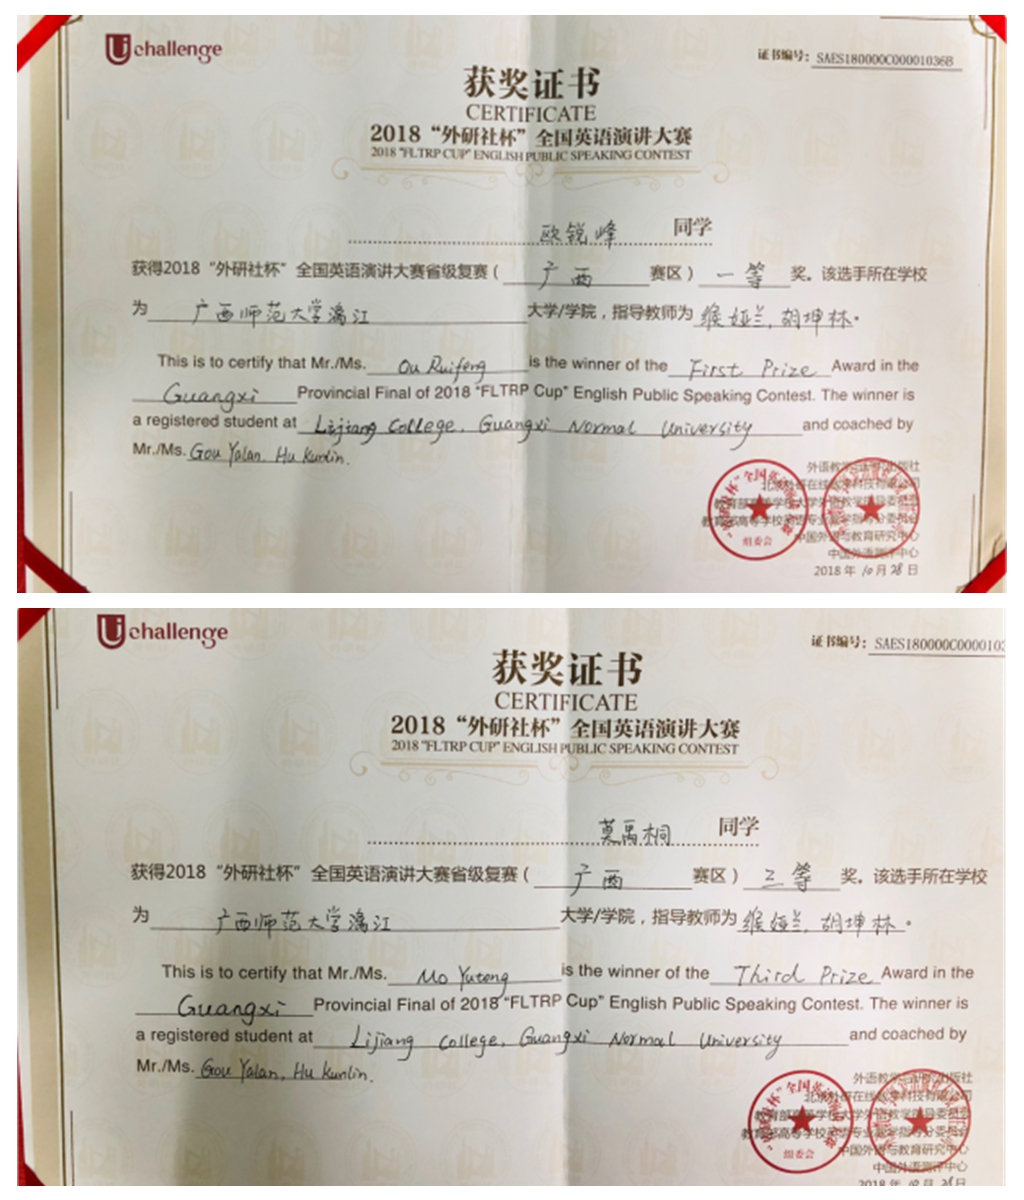 Uchallenge
证书编号: SAES180000C00001036B
获奖证书
CERTIFICATE
2018“外研社杯”全国英语演讲大赛
2018 "FLTRP CUP" ENGLISH PUBLIC SPEAKING CONTEST
欧锐峰 同学
获得2018“外研社杯”全国英语演讲大赛省级复赛（广西 赛区）一等 奖。该选手所在学校
为 广西师范大学漓江 大学/学院，指导教师为 缑娅兰, 胡坤林.
This is to certify that Mr./Ms. Ou Ruifeng is the winner of the First Prize Award in the
Guangxi Provincial Final of 2018 "FLTRP Cup" English Public Speaking Contest. The winner is
a registered student at Lijiang College, Guangxi Normal University and coached by
Mr./Ms. Gou Yalan, Hu Kunlin.
外语教学与研究出版社
北京外研在线教育科技有限公司
教育部高等学校大学外语教学指导委员会
教育部高等学校英语专业教学指导分委员会
中国外语与教育研究中心
中国外语测评中心
组委会
2018 年 10 月 28 日
Uchallenge
证书编号: SAES180000C0000103
获奖证书
CERTIFICATE
2018“外研社杯”全国英语演讲大赛
2018 "FLTRP CUP" ENGLISH PUBLIC SPEAKING CONTEST
莫禹桐 同学
获得2018“外研社杯”全国英语演讲大赛省级复赛（广西 赛区）三等 奖。该选手所在学校
为 广西师范大学漓江 大学/学院，指导教师为 缑娅兰, 胡坤林.
This is to certify that Mr./Ms. Mo Yutong is the winner of the Third Prize Award in the
Guangxi Provincial Final of 2018 "FLTRP Cup" English Public Speaking Contest. The winner is
a registered student at Lijiang College, Guangxi Normal University and coached by
Mr./Ms. Gou Yalan, Hu Kunlin.
外语教学与研究出版社
北京外研在线教育科技有限公司
教育部高等学校大学外语教学指导委员会
教育部高等学校英语专业教学指导分委员会
中国外语与教育研究中心
中国外语测评中心
组委会
2018 年 10 月 28 日